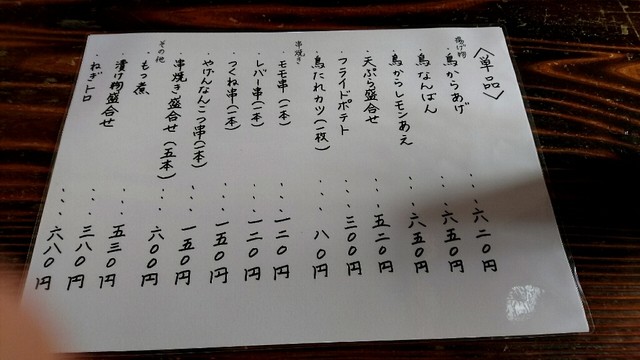 〈単品〉
揚げ物
・鳥からあげ ・・・・六二〇円
・鳥なんばん ・・・・六五〇円
・鳥からレモンあえ ・・・・六五〇円
・天ぷら盛合せ ・・・・五二〇円
・フライドポテト ・・・・三〇〇円
・鳥たれカツ(一枚) ・・・・八〇円
串焼き
・モモ串(一本) ・・・・一二〇円
・レバー串(一本) ・・・・一二〇円
・つくね串(一本) ・・・・一五〇円
・やげんなんこつ串(一本) ・・・・一五〇円
・串焼き盛合せ(五本) ・・・・六〇〇円
その他
・もつ煮 ・・・・五三〇円
・漬け物盛合せ ・・・・三八〇円
・ねぎトロ ・・・・六八〇円